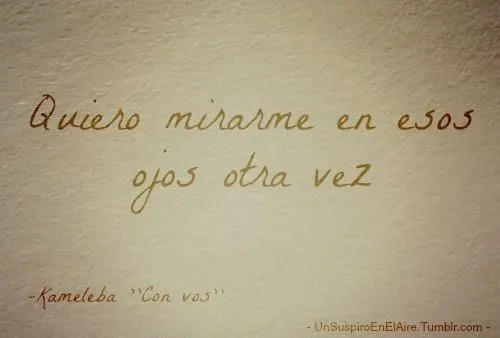 Quiero mirarme en esos
ojos otra vez
-Kameleba "Con vos"
- UnSuspiroEnElAire.Tumblr.com -